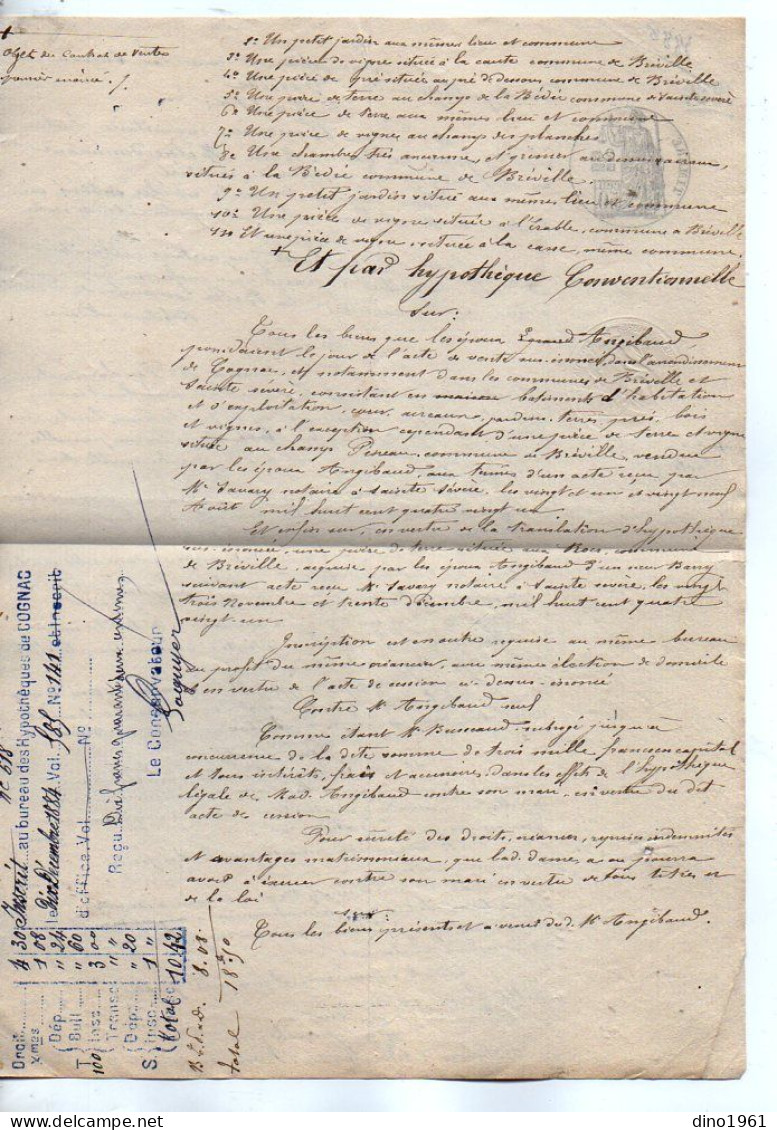 Objet du contrat de vente
2º Un petit jardin aux mêmes lieu et commune
3º Une pièce de vigne située à la caute commune de Bréville
4º Une pièce de pré située au pré de dessous commune de Bréville
5º Une pièce de terre au champs de la Bédie commune de Sainte sévère
6º Une pièce de terre aux mêmes lieu et commune
7º Une pièce de vignes au champs des planches
8º Une chambre très ancienne, et grenier au dessus,
située à la Bédie commune de Bréville.
9º Un petit jardin situé aux mêmes lieu et commune
10º Une pièce de vigne située à l'érable, commune de Bréville
11º Et une pièce de vigne située à la casse, même commune.
+ Et par hypothèque Conventionnelle
sur:
Tous les biens que les époux Angibaud,
possédaient le jour de l'acte de vente sus-énoncé, dans l'arrondissement
de Cognac, et notamment dans les communes de Bréville et
Sainte sévère, consistant en batiments d'habitation
et d'exploitation, cour, jardins, terres, prés, bois
et vignes, à l'exception cependant d'une pièce de terre et vigne
située au champs Péreau, commune de Bréville, vendue
par les époux Angibaud, aux termes d'un acte reçu par
Me Savary notaire à Sainte sévère, les vingt et un et vingt neuf
Août mil huit cent quatre vingt un
Et enfin sur, en vertu de la translation d'hypothèque
sus-énoncée, une pièce de terre située aux Rocs, commune
de Bréville, acquise par les époux Angibaud d'un sieur
suivant acte reçu Me Savary notaire à Sainte sévère, les vingt
trois Novembre et trente Décembre, mil huit cent quatre
vingt un
Inscription est en outre requise au même bureau
au profit du même créancier, avec même élection de domicile
et en vertu de l'acte de cession ci-dessus énoncé
Contre Mr Angibaud seul
Comme étant Mr subrogé jusqu'à
concurrence de la dite somme de trois mille francs en capital
et tous intérêts, frais et accessoires, dans les effets de l'hypothèque
légale de Mad. Angibaud contre son mari, en vertu du dit
acte de cession
Pour sûreté des droits, créances, reprises indemnités
et avantages matrimoniaux, que lad. dame a ou pourra
avoir à exercer contre son mari en vertu de tous titres et
de la loi
sur:
Tous les biens présents et à venir dud. Mr Angibaud.
Nº 618
Inscrit au bureau des Hypothèques de COGNAC
le Dix Décembre 1884 Vol. 365 Nº 141 et inscrit
d'office Vol. Nº
Reçu
Le Conservateur
Droit 4 30
Xmes 1 08
Dép. " 24
Bull " 60
T 100 Insc. 3 00
Transc. " "
Dép. " 20
S Insc. 1 "
total 10.42
8.08
total 18.50
dino1961